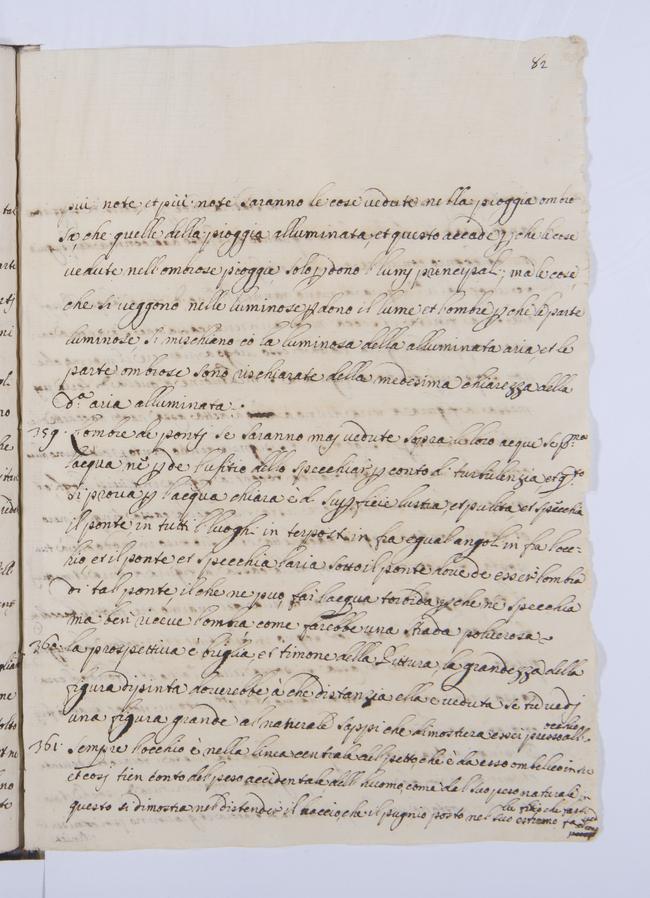 82
piu note, et piu note saranno le cose vedute nella pioggia ombro
sa, che quelle della pioggia alluminata, et questo accade che le cose
vedute nell ombrose pioggie solo dono i lumj principali; ma le cose
che si veggono nelle luminose dono il lume et l'ombre che le parte
luminose, si mischiano cō la luminosa della alluminata aria et le
parte ombrose, sono rischiarate della medesima chiarezza della
d.ª aria alluminata.
359. L'ombre de pontj se saranno maj vedute sopra le loro acque se
l'acqua nō de l'ufitio dello specchiar conto di turbulenzia et
si prova l'acqua chiara è di superfitie lustra, et pulita et specchia
il ponte in tutti i luoghi interposti in fra equali angoli in fra l'occ-
hio et il ponte et specchia l'aria sotto il ponte dove de esser l'ombra
di tal ponte il che ne può far l'acqua torbida che nō specchia
ma ben riceve l'ombra come farebbe una strada polverosa.
360. la prospettiva è briglia et timone della Pittura, la grandezza della
figura dipinta doverebbe, à che distanzia ella è veduta se tu vedj
una figura grande al naturale sappi che dimostera esser presso all.
occhio
361. Sempre l'occhio è nella linea centrale del petto che è da esso ombelico in su
et cosj tien conto del peso accidentale dell'huomo, come del suo peso naturale
questo si dimostra nel distender il braccio, che il pugnio posto nel suo estremo